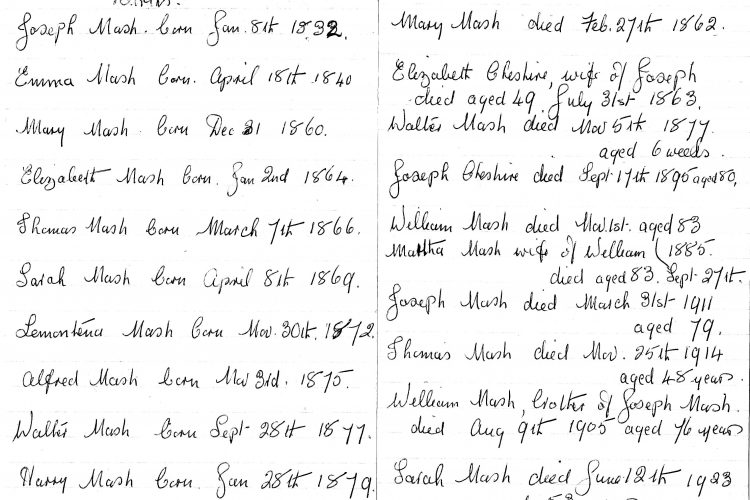 Joseph Mash. born Jan. 8th 1832.
Emma Mash born. April 18th 1840
Mary Mash born Dec 31 1860.
Elizabeth Mash born. Jan 2nd 1864.
Thomas Mash born March 7th 1866.
Sarah Mash born April 8th 1869.
Lemontena Mash born Nov. 30th. 1872.
Alfred Mash born Nov 3rd. 1875.
Walter Mash born Sept 28th 1877.
Harry Mash born. Jan 28th 1879.
Mary Mash died Feb. 27th 1862.
Elizabeth Cheshire, wife of Joseph
died aged 49 July 31st 1863.
Walter Mash died Nov 5th 1877.
aged 6 weeks.
Joseph Cheshire died Sept 17th 1895 aged 80.
William Mash died Nov. 1st. aged 83
Martha Mash wife of William (1885.
died aged 83. Sept. 27th.
Joseph Mash died March 31st 1911
aged 79.
Thomas Mash died Nov. 25th 1914
aged 48 years.
William Mash, brother of Joseph Mash.
died Aug 9th 1905 aged 76 years
Sarah Mash died June 12th 1923